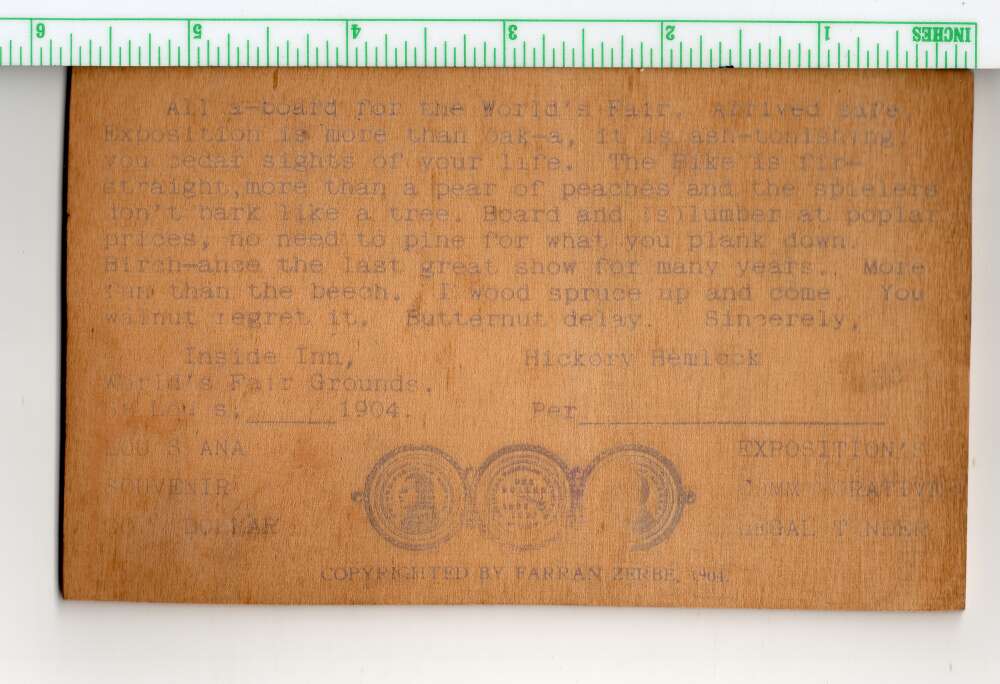 All a-board for the World's Fair. Arrived safe.
Exposition is more than oak-a, it is ash-tonishing,
you cedar sights of your life. The Pike is fir-
straight, more than a pear of peaches and the spielers
don't bark like a tree. Board and (s)lumber at poplar
prices, no need to pine for what you plank down.
Birch-ance the last great show for many years. More
fun than the beech. I wood spruce up and come. You
walnut regret it. Butternut delay. Sincerely,
Inside Inn, Hickory Hemlock
World's Fair Grounds.
St. Louis, ______ 1904. Per____________________
LOUISIANA EXPOSITION'S
SOUVENIR COMMEMORATIVE
DOLLAR LEGAL TENDER
COPYRIGHTED BY FARRAN ZERBE, 1904.
INCHES
1
2
3
4
5
6